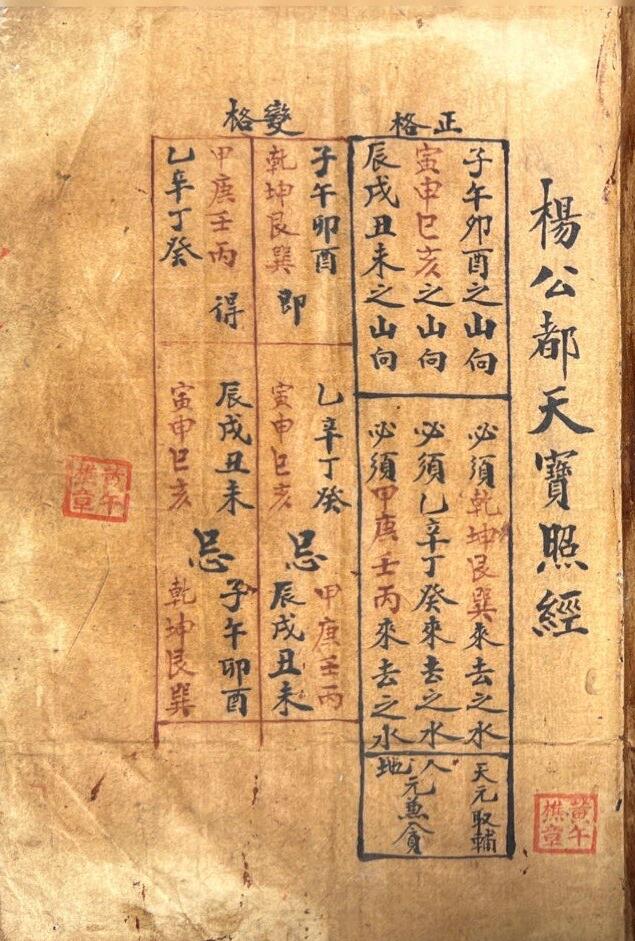 楊公都天寶照經
正格
子午卯酉之山向
必須乾坤艮巽來去之水
天元取輔
寅申巳亥之山向
必須乙辛丁癸來去之水
辰戌丑未之山向
必須甲庚壬丙來去之水
人地
元兼貪
變格
子午卯酉
乾坤艮巽
即
乙辛丁癸
寅申巳亥
忌
甲庚壬丙
辰戌丑未
甲庚壬丙
乙辛丁癸
得
辰戌丑未
寅申巳亥
忌
子午卯酉
乾坤艮巽
黃午
樵章
黃午
樵章